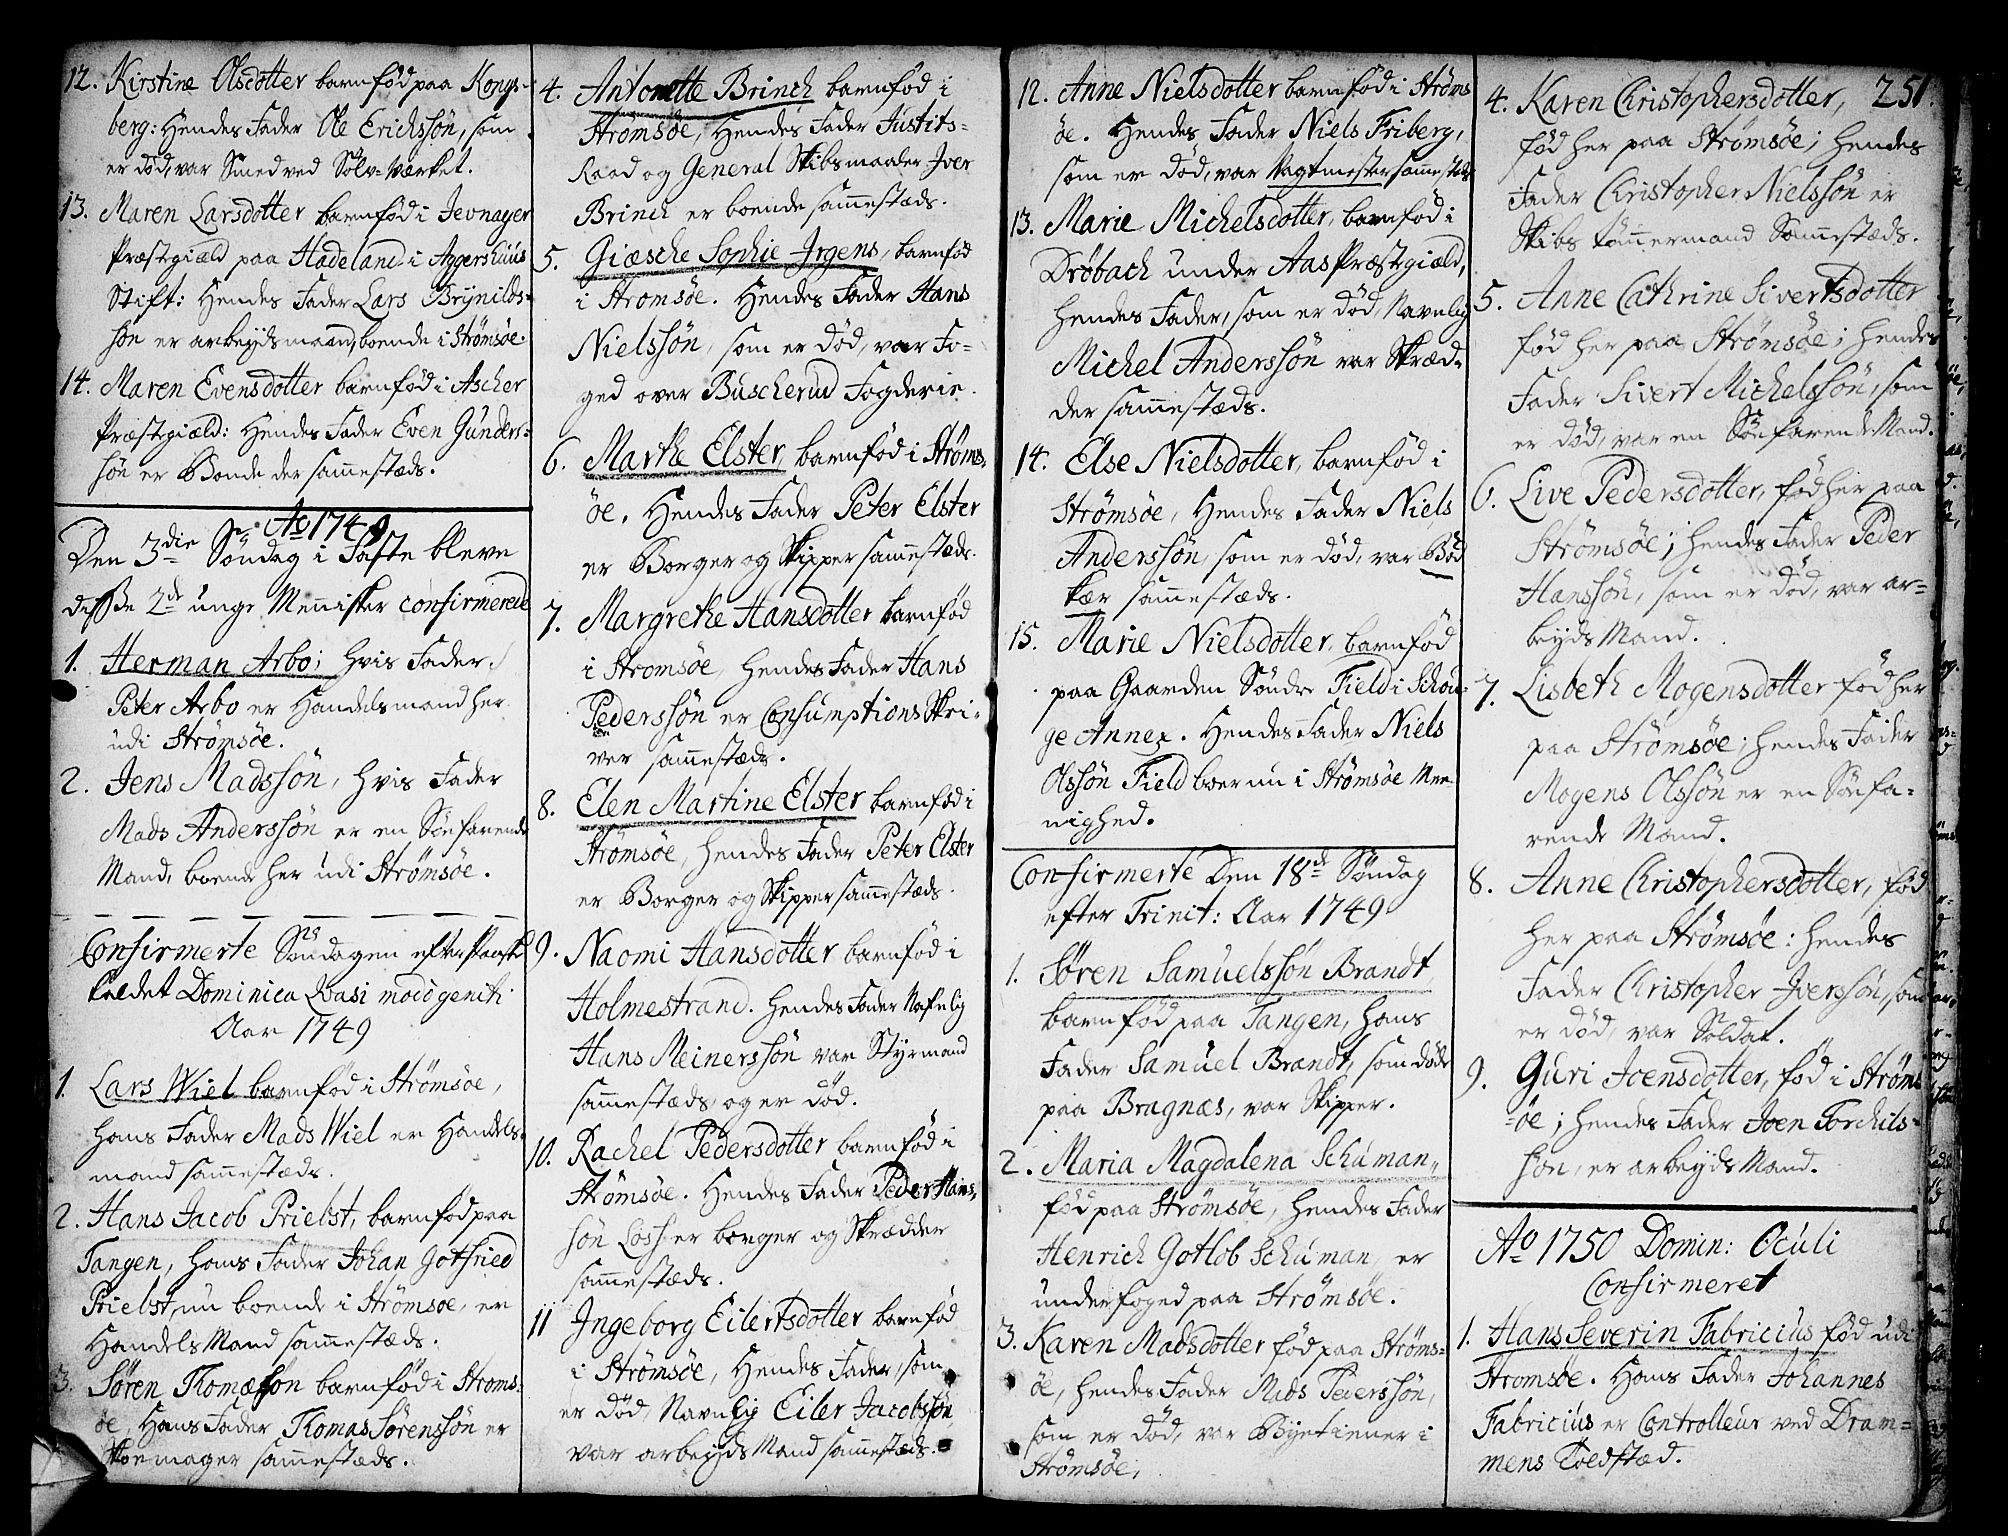 12. Kirstine Olsdotter barnfød paa Kongs-
berg: Hendes Fader Ole Erichssøn, som
er død, var Smed ved Sølv-Værket.
13. Maren Larsdotter barnfød i Jevnager
Præstgiæld paa Hadeland i Aggershuus
Stift: Hendes Fader Lars Brynilds-
søn er arbeydsmand, boende i Strømsøe.
14. Maren Evensdotter barnfød i Ascher
Præstgiæld: Hendes Fader Even Gunders-
søn er Bonde der samestæds.
Ao 1749
Den 3die Søndag i Faste bleve
disse 2de unge Mennisker confirmerede
1. Herman Arbo; hvis Fader
Peter Arbo er Handelsmand her
udi Strømsøe.
2. Jens Madssøn, hvis Fader
Mads Anderssøn er en Søefarende
Mand, boende her udi Strømsøe.
Confirmerte Søndagen efter Paaske
kaldet Dominica Qvasi modo geniti
Aar 1749
1. Lars Wiel barnfød i Strømsøe,
hans Fader Mads Wiel er Handels-
mand samestæds.
2. Hans Jacob Prielst, barnfød paa
Tangen, hans Fader Johan Gotfried
Prielst, nu boende i Strømsøe, er
Handels Mand samestæds.
3. Søren Thomæsøn barnfød i Strøms-
øe, Hans Fader Thomas Sørenssøn er
Skoemager samestæds.
4. Antonette Brinch barnfød i
Strømsøe, Hendes Fader Justits-
Raad og General Skibsmaaler Iver
Brinch er boende samestæds.
5. Giæsche Sophie Irgens, barnfød
i Strømsøe. Hendes Fader Hans
Nielssøn, som er død, var Fo-
ged over Buscherud Fogderie.
6. Marthe Elster barnfød i Strøms-
øe. Hendes Fader Peter Elster
er Borger og Skipper samestæds.
7. Margrethe Hansdotter barnfød
i Strømsøe, Hendes Fader Hans
Pederssøn er Consumptions Skri-
ver samestæds.
8. Elen Martine Elster barnfød i
Strømsøe, hendes Fader Peter Elster
er Borger og Skipper samestæds.
9. Naomi Hansdotter barnfød i
Holmestrand. Hendes Fader Nafnlig
Hans Meinerssøn var Styrmand
samestæds, og er død.
10. Rachel Pedersdotter barnfød i
Strømsøe. Hendes Fader Peder Hans-
søn Loss er borger og Skrædder
samestæds.
11 Ingeborg Eilertsdotter barnfød
i Strømsøe, Hendes Fader, som
er død, Navnlig Eiler Jacobssøn
var arbeyds Mand samestæds.
12. Anne Nielsdotter barnfød i Strøms
øe. Hendes Fader Niels Friberg,
som er død, var Vagtmester samestæds
13. Marie Michelsdotter, barnfød i
Drøbach under Aas Præstgiæld,
hendes Fader, som er død, Navnlig
Michel Anderssøn var Skræd-
der samestæds.
14. Else Nielsdotter, barnfød i
Strømsøe, Hendes Fader Niels
Anderssøn, som er død, var Bød
kær samestæds.
15. Marie Nielsdotter, barnfød
paa Gaarden Søndre Field i Schou-
ge Annex. Hendes Fader Niels
Olssøn Field boer nu i Strømsøe Me-
nighed.
Confirmerte Den 18de Søndag
efter Trinit: Aar 1749
1. Søren Samuelssøn Brandt
barnfød paa Tangen, hans
Fader Samuel Brandt, som døde
paa Bragnæs, var Skipper.
2. Maria Magdalena Schuman
fød paa Strømsøe, hendes Fader
Henrich Gotlob Schuman er
underfoged paa Strømsøe.
3. Karen Madsdotter fød paa Strøms-
øe, hendes Fader Mads Pederssøn,
som er død, var Byetiener i
Strømsøe,
251.
4. Karen Christophersdotter,
fød her paa Strømsøe; hendes
Fader Christopher Nielssøn er
Skibs tømermand Samestæds.
5. Anne Cathrine Sivertsdotter
fød her paa Strømsøe; hendes
Fader Sivert Michelssøn, som
er død, var en Søefarende Mand.
6. Live Pedersdotter, fød her paa
Strømsøe; hendes Fader Peder
Hanssøn, som er død, var ar-
beyds Mand.
7. Lisbeth Mogensdotter fød her
paa Strømsøe; hendes Fader
Mogens Olssøn er en Søefa-
rende Mand.
8. Anne Christophersdotter, fød
her paa Strømsøe: hendes
Fader Christopher Iverssøn, som
er død, var Soldat.
9. Guri Joensdotter, fød i Strøms
-øe; hendes Fader Joen Torchils-
søn, er arbeyds Mand.
Ao 1750 Domin: Oculi
Confirmeret
1. Hans Severin Fabricius fød udi
Strømsøe. Hans Fader Johannes
Fabricius er Controlleur ved Dram-
mens Toldstæd.